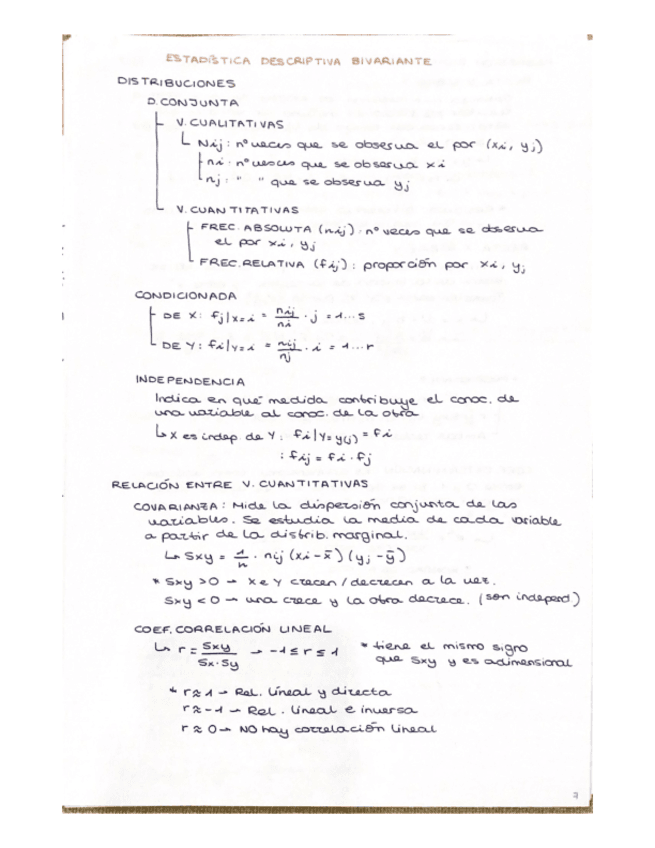 ESTADÍSTICA DESCRIPTIVA BIVARIANTE
DISTRIBUCIONES
D. CONJUNTA
V. CUALITATIVAS
Nij: nº veces que se observa el par (xi, yj)
ni: nº veces que se observa xi
nj: " " que se observa yj
V. CUANTITATIVAS
FREC. ABSOLUTA (nij): nº veces que se observa
el par xi, yj
FREC. RELATIVA (fij): proporción par xi, yj
CONDICIONADA
DE X: fj|x=i = nij/ni · j = 1...s
DE Y: fi|y=i = nij/nj · i = 1...r
INDEPENDENCIA
Indica en qué medida contribuye el conoc. de
una variable al conoc. de la otra
↳ X es indep de Y: fi|Y=y(j) = fi
: fij = fi · fj
RELACIÓN ENTRE V. CUANTITATIVAS
COVARIANZA: Mide la dispersión conjunta de las
variables. Se estudia la media de cada variable
a partir de la distrib. marginal.
↳ Sxy = 1/n · nij (xi - x̄)(yj - ȳ)
* Sxy > 0 → X e Y crecen/decrecen a la vez.
Sxy < 0 → una crece y la otra decrece. (son independ)
COEF. CORRELACIÓN LINEAL
↳ r = Sxy/Sx·Sy → -1 ≤ r ≤ 1 * tiene el mismo signo
que Sxy y es adimensional
* r ≈ 1 → Rel. lineal y directa
r ≈ -1 → Rel. lineal e inversa
r ≈ 0 → NO hay correlación lineal